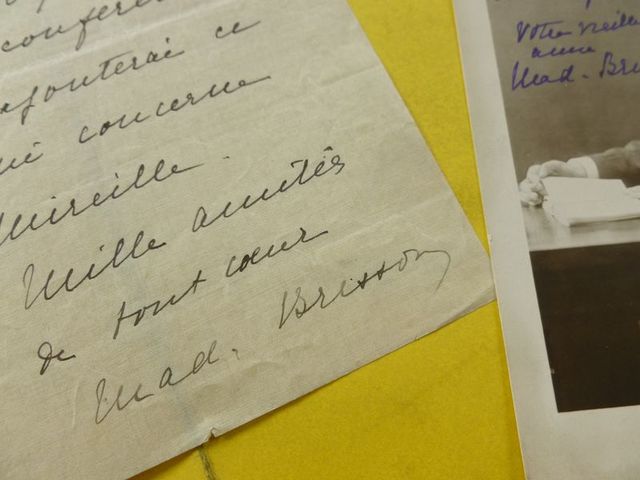 conféren
ajouterai ce
qui concerne
Mireille.
Mille amitiés
de tout cœur
Mad. Brisson
Votre vieille
amie
Mad. Bri